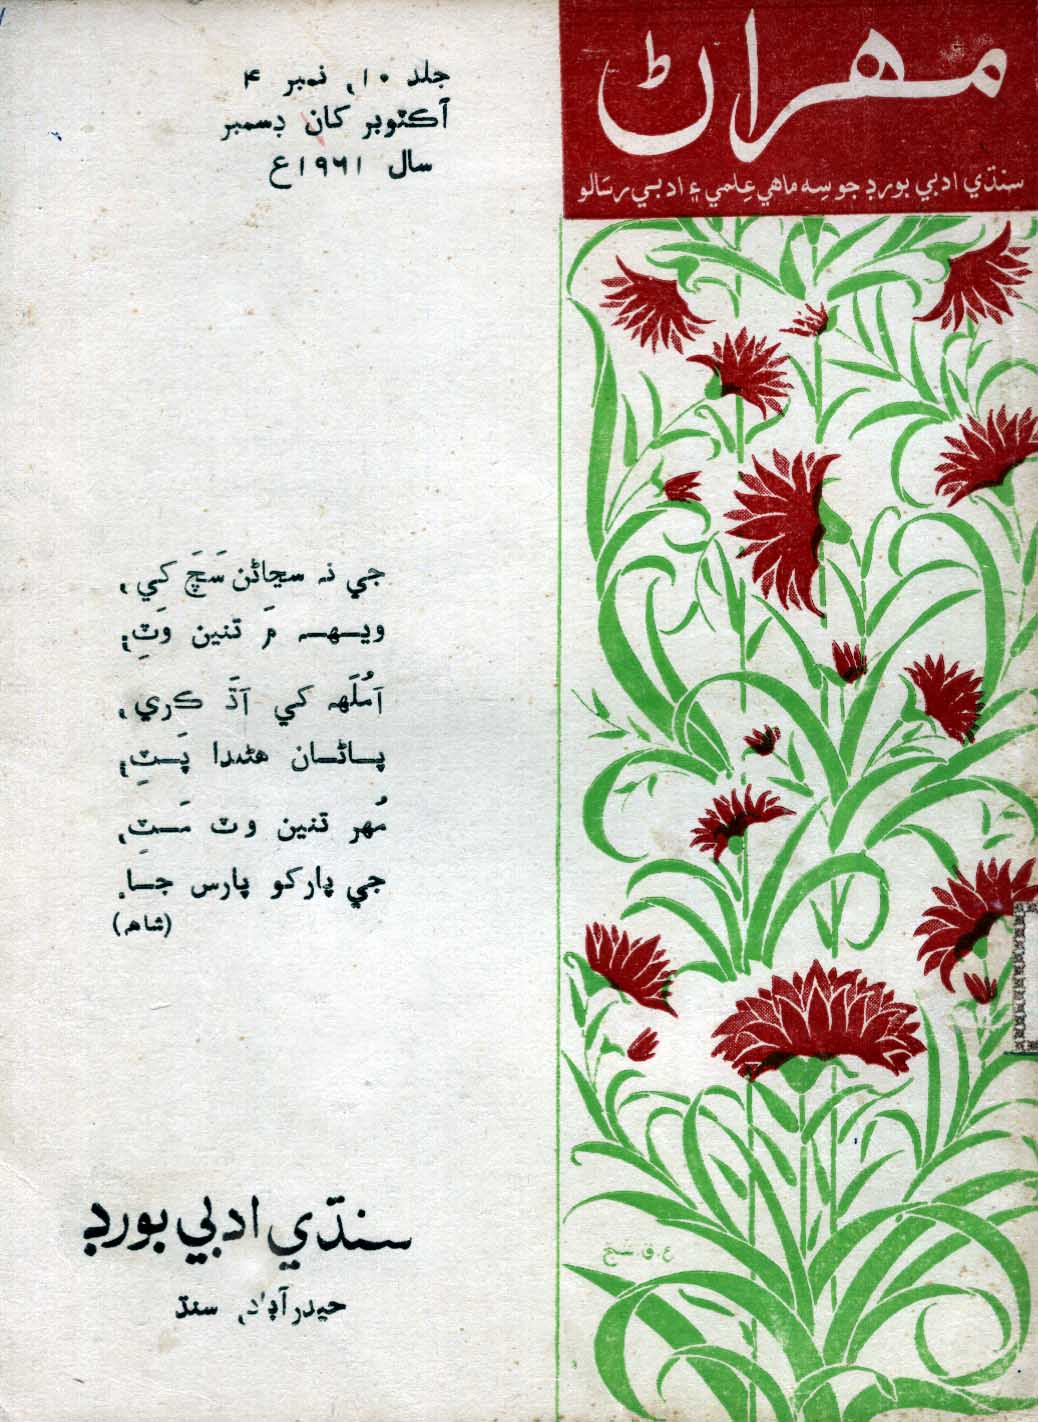 مهراڻ
سنڌي ادبي بورڊ جو سِه ماهي عِلمي ۽ ادبي رسَالو
جلد ۱۰، نمبر ۴
آڪٽوبر کان ڊسمبر
سال ۱۹۶۱ع
جي نہ سڃاڻن سَچَ کي،
ويـهـہ مَ تنين وَٽِ؛
اَمُلَهہ کي اَڌَ ڪري،
پـاڻـان هڻندا پَـٽِ؛
مُهر تنين وٽ مَـٽِ،
جي پارکو پارس جسا.
(شاهہ)
سنڌي ادبي بورڊ
حيدرآباد، سنڌ